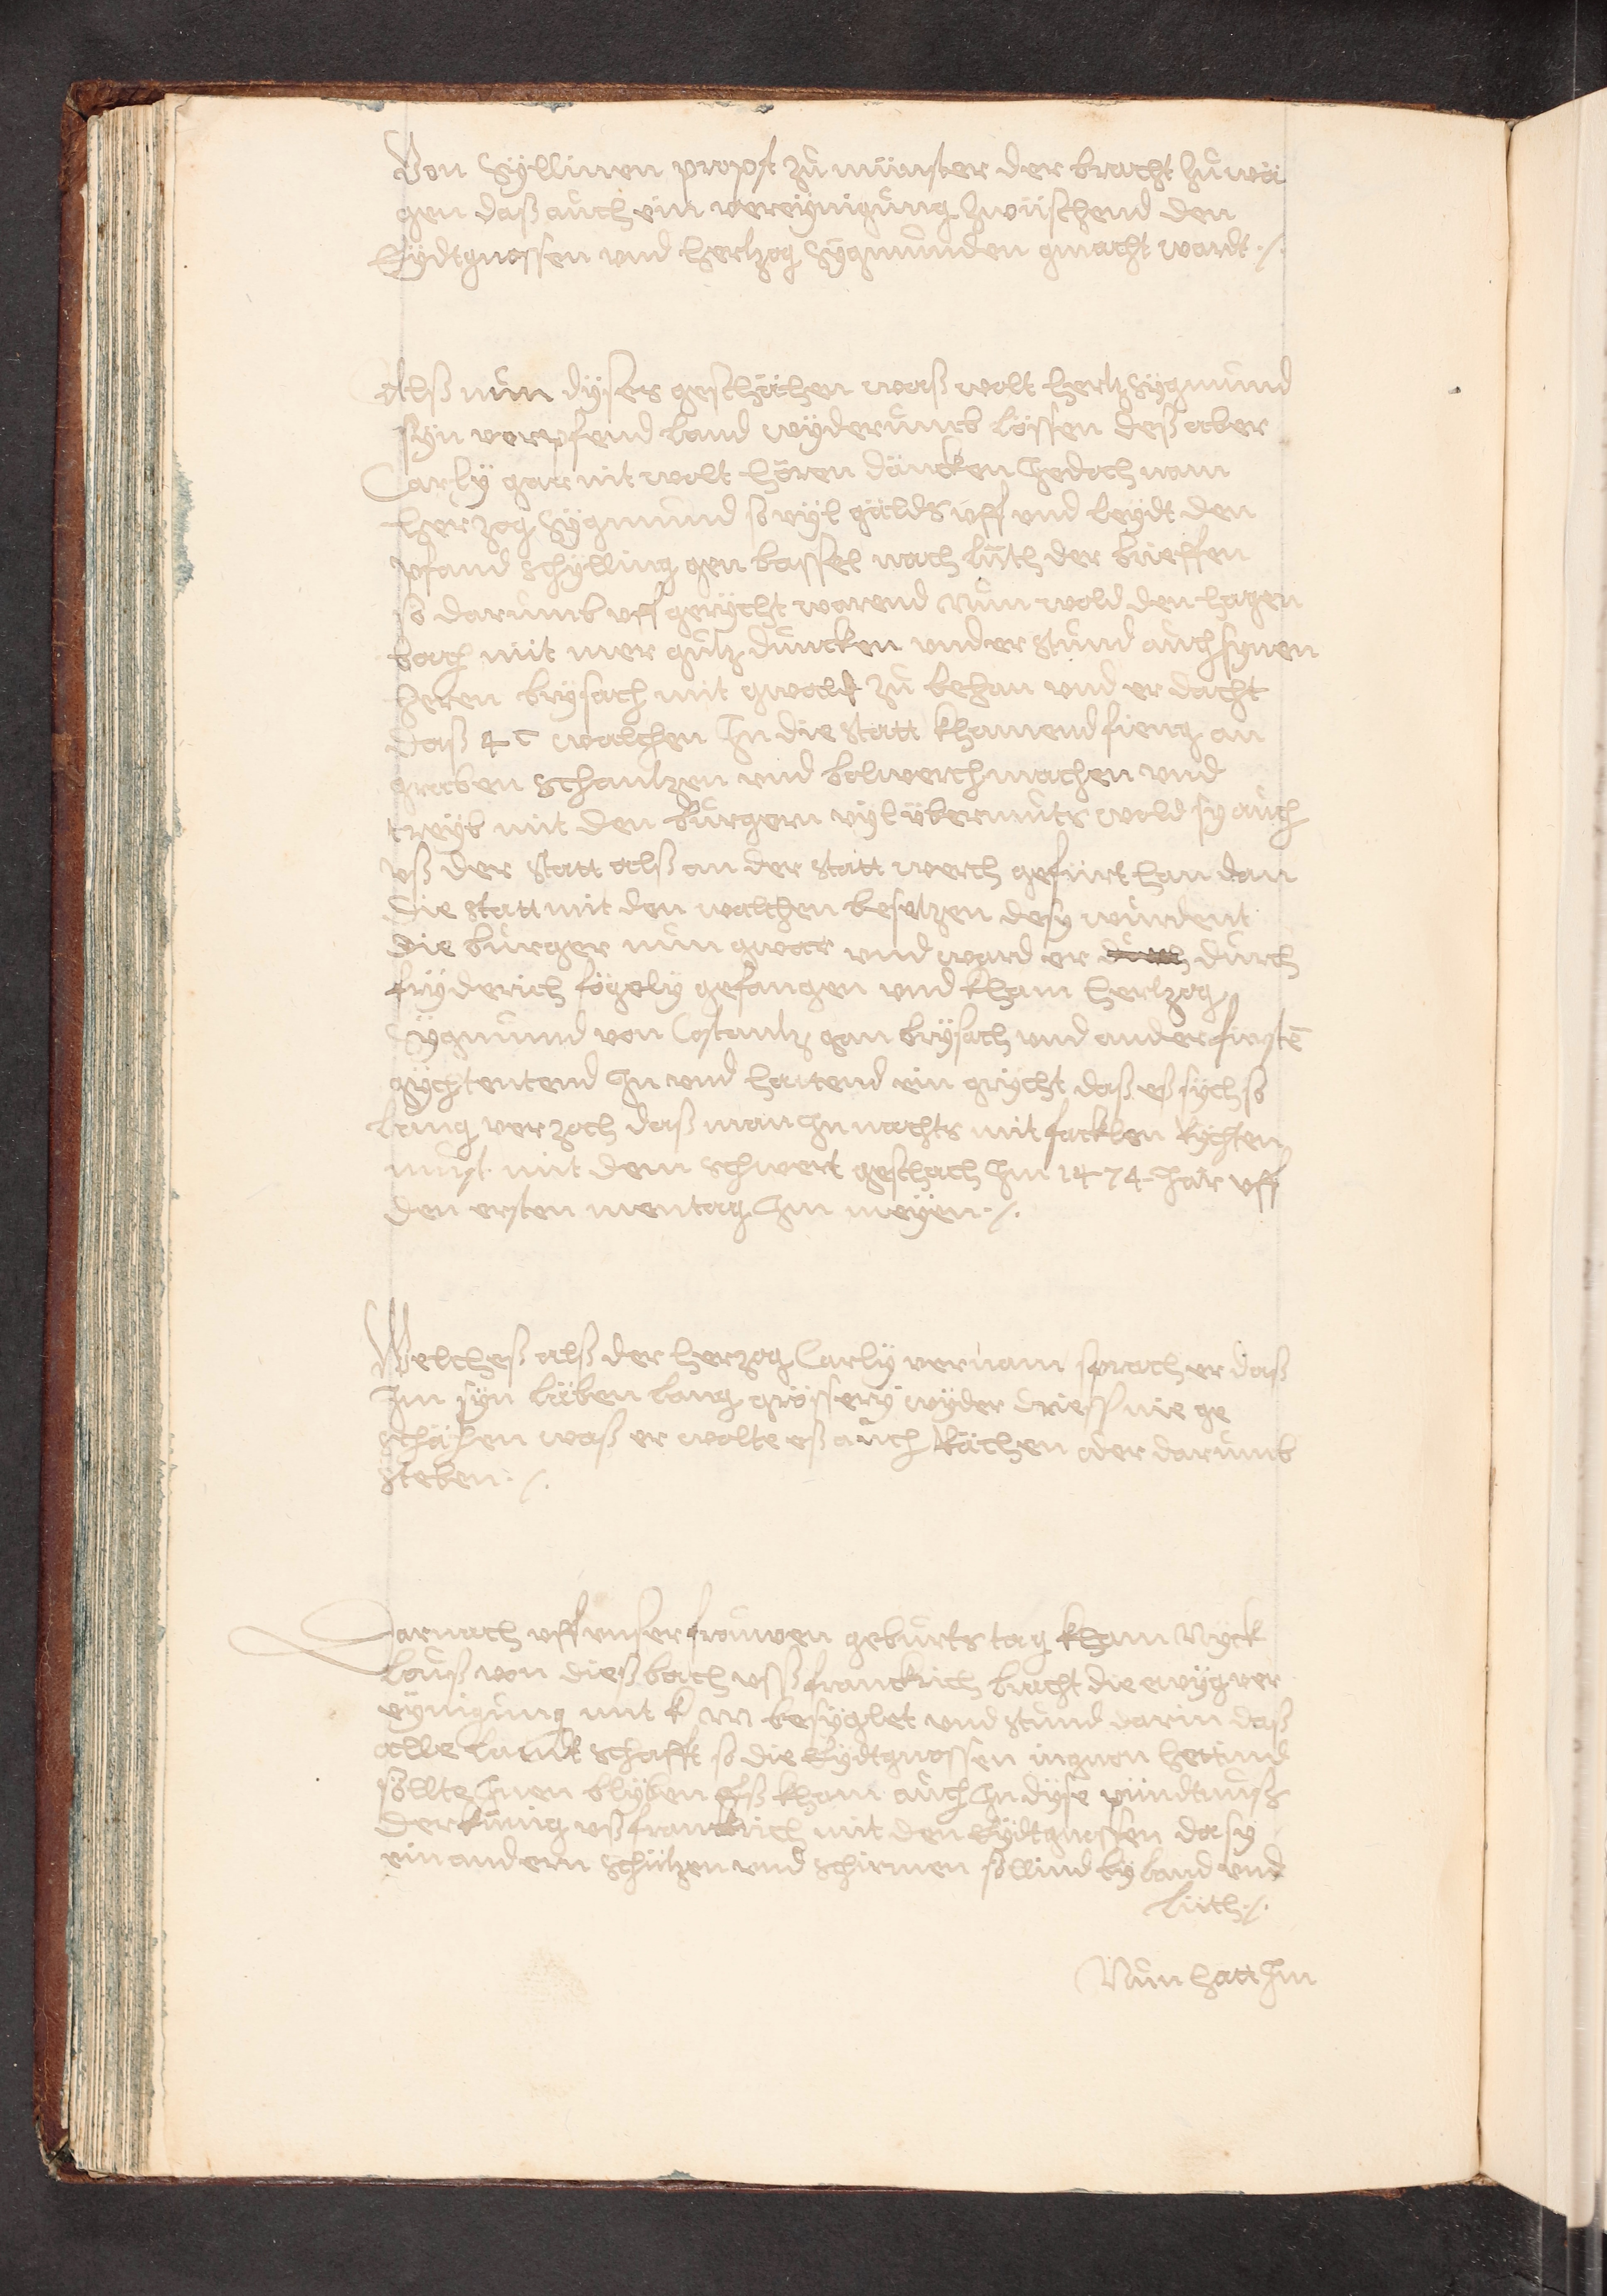 Von Syllinen propst zů münster der bracht zů wä
gen daß auch ein vereynigung zwüschend den
Eydtgnossen vnd hertzog Sygmunden gmacht wardt ./.
Alß nun dyses geschächen waß wolt hertz Sygmund
syn verpfend land wyderumb lössen deß aber
Carly gar nit wolt hören däncken Jedoch nam
hertzog Sygmund so vyl gälds vff vnd leydt den
pfand schylling gen bassel nach luth der brieffen
so darumb vff gerycht warend Nun wold den hagen
bach nit mer gůtz duncken vnder stund auch synen
heren brysach mit gwalt zů behan vnd er dacht
daß 4 C walchen In die statt khamend fieng an
graben schantzen vnd bolwerch machen vnd
treyb mit den burgern vyl übermuts wold sy auch
vß der statt alß an der statt werch gefürt han dan
die statt mit den walchen besetzen deß wurdent
die burger nun gwar vnd ward er durch
fryderich fögely gefangen vnd kham hertzog
Sygmund von Costantz gan brysach vnd ander fürstē
gychtentend In vnd hattend ein grycht daß eß sych so
lang verzoch daß man In nachts mit facklen Rychten
must mit dem schwert geschach Im 1474 Jar vff
den ersten mentag Im meyen ./.
Welcheß alß der hertzog Carly vernam sprach er daß
Im syn läben lang grössery wyder drieß nie ge
schächen waß er wolte eß auch Rächen oder darumb
steben ./.
Darnach vff vnser frouwen geburts tag kham Nyck
lauß von dießbach vß franckrich bracht die ewyg ver
eynigung mit besyglet vnd stund darin daß
alle landtschafft so die Eydtgnossen ingnon hettind
söllte Inen blyben Eß kham auch In dyse pündtnuß
der künig vß franckrich mit den Eydtgnossen daß sy
ein andern schützen vnd schirmen söllind by land vnd
lüth ./.
Nun hatt Im